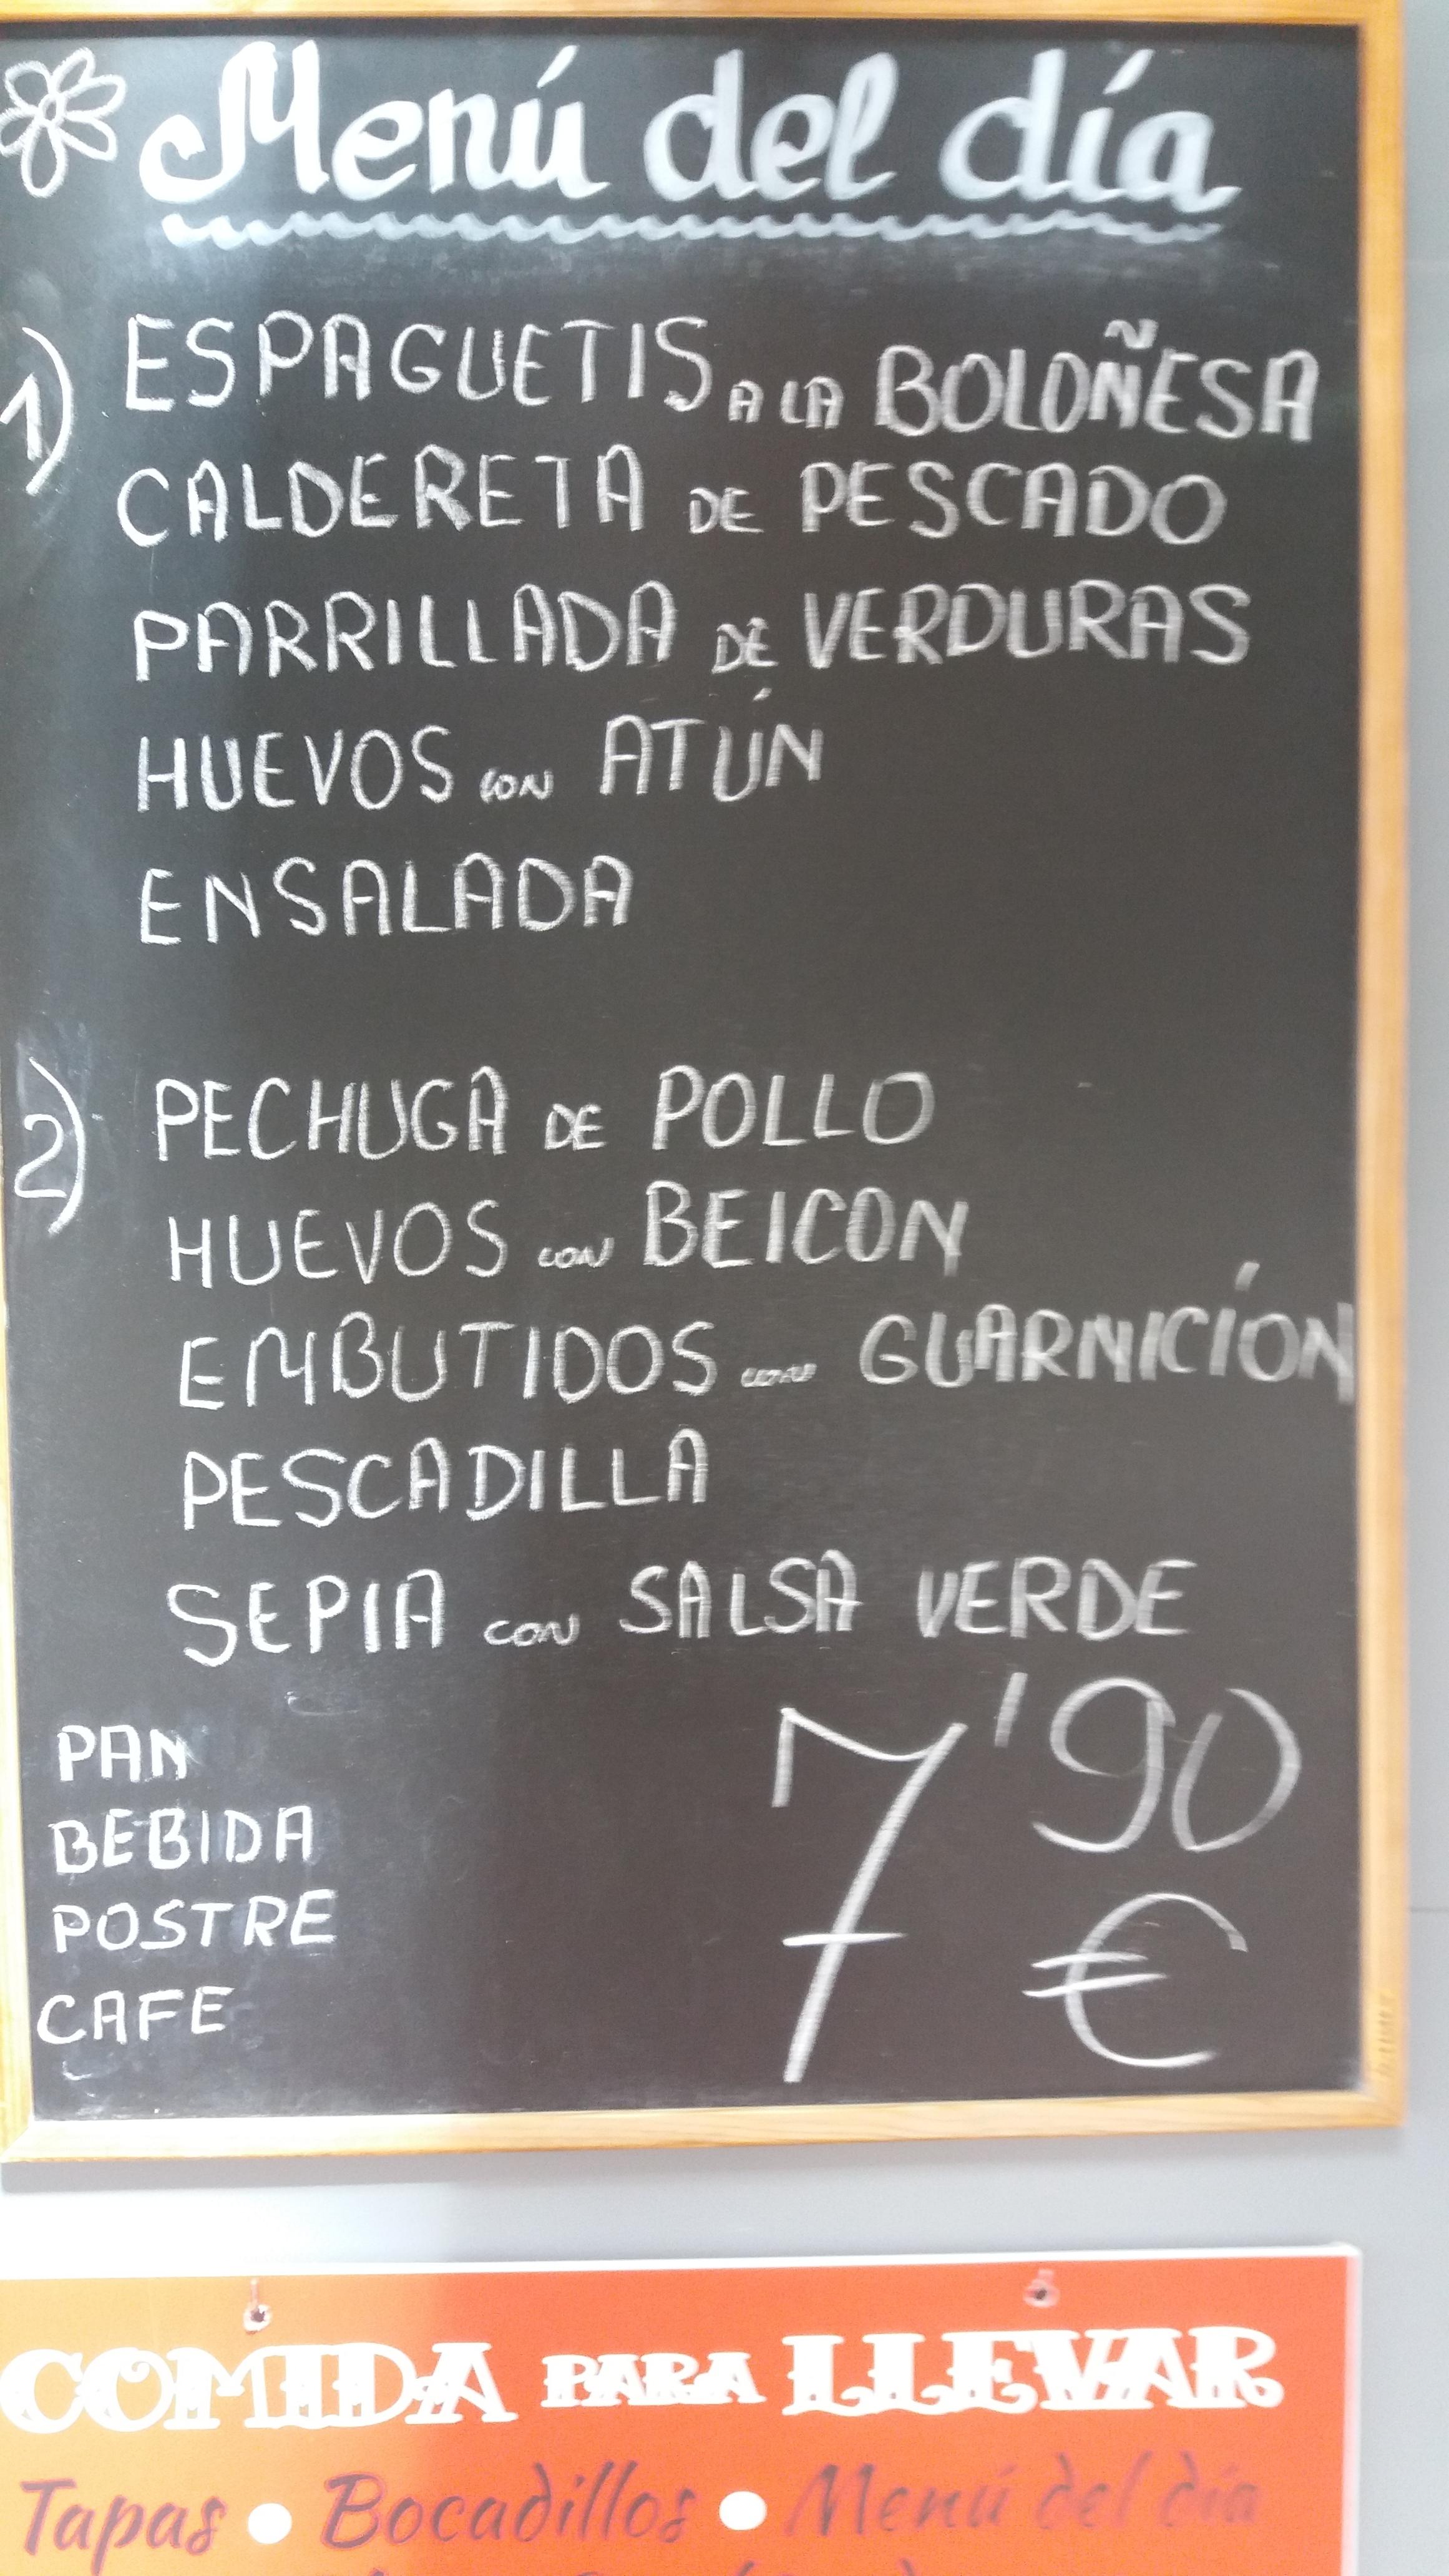 Menú del día
1) ESPAGUETIS A LA BOLOÑESA
CALDERETA DE PESCADO
PARRILLADA DE VERDURAS
HUEVOS CON ATÚN
ENSALADA
2) PECHUGA DE POLLO
HUEVOS CON BEICON
EMBUTIDOS CON GUARNICIÓN
PESCADILLA
SEPIA CON SALSA VERDE
PAN
BEBIDA
POSTRE
CAFE
7'90
€
COMIDA PARA LLEVAR
Tapas • Bocadillos • Menú del día